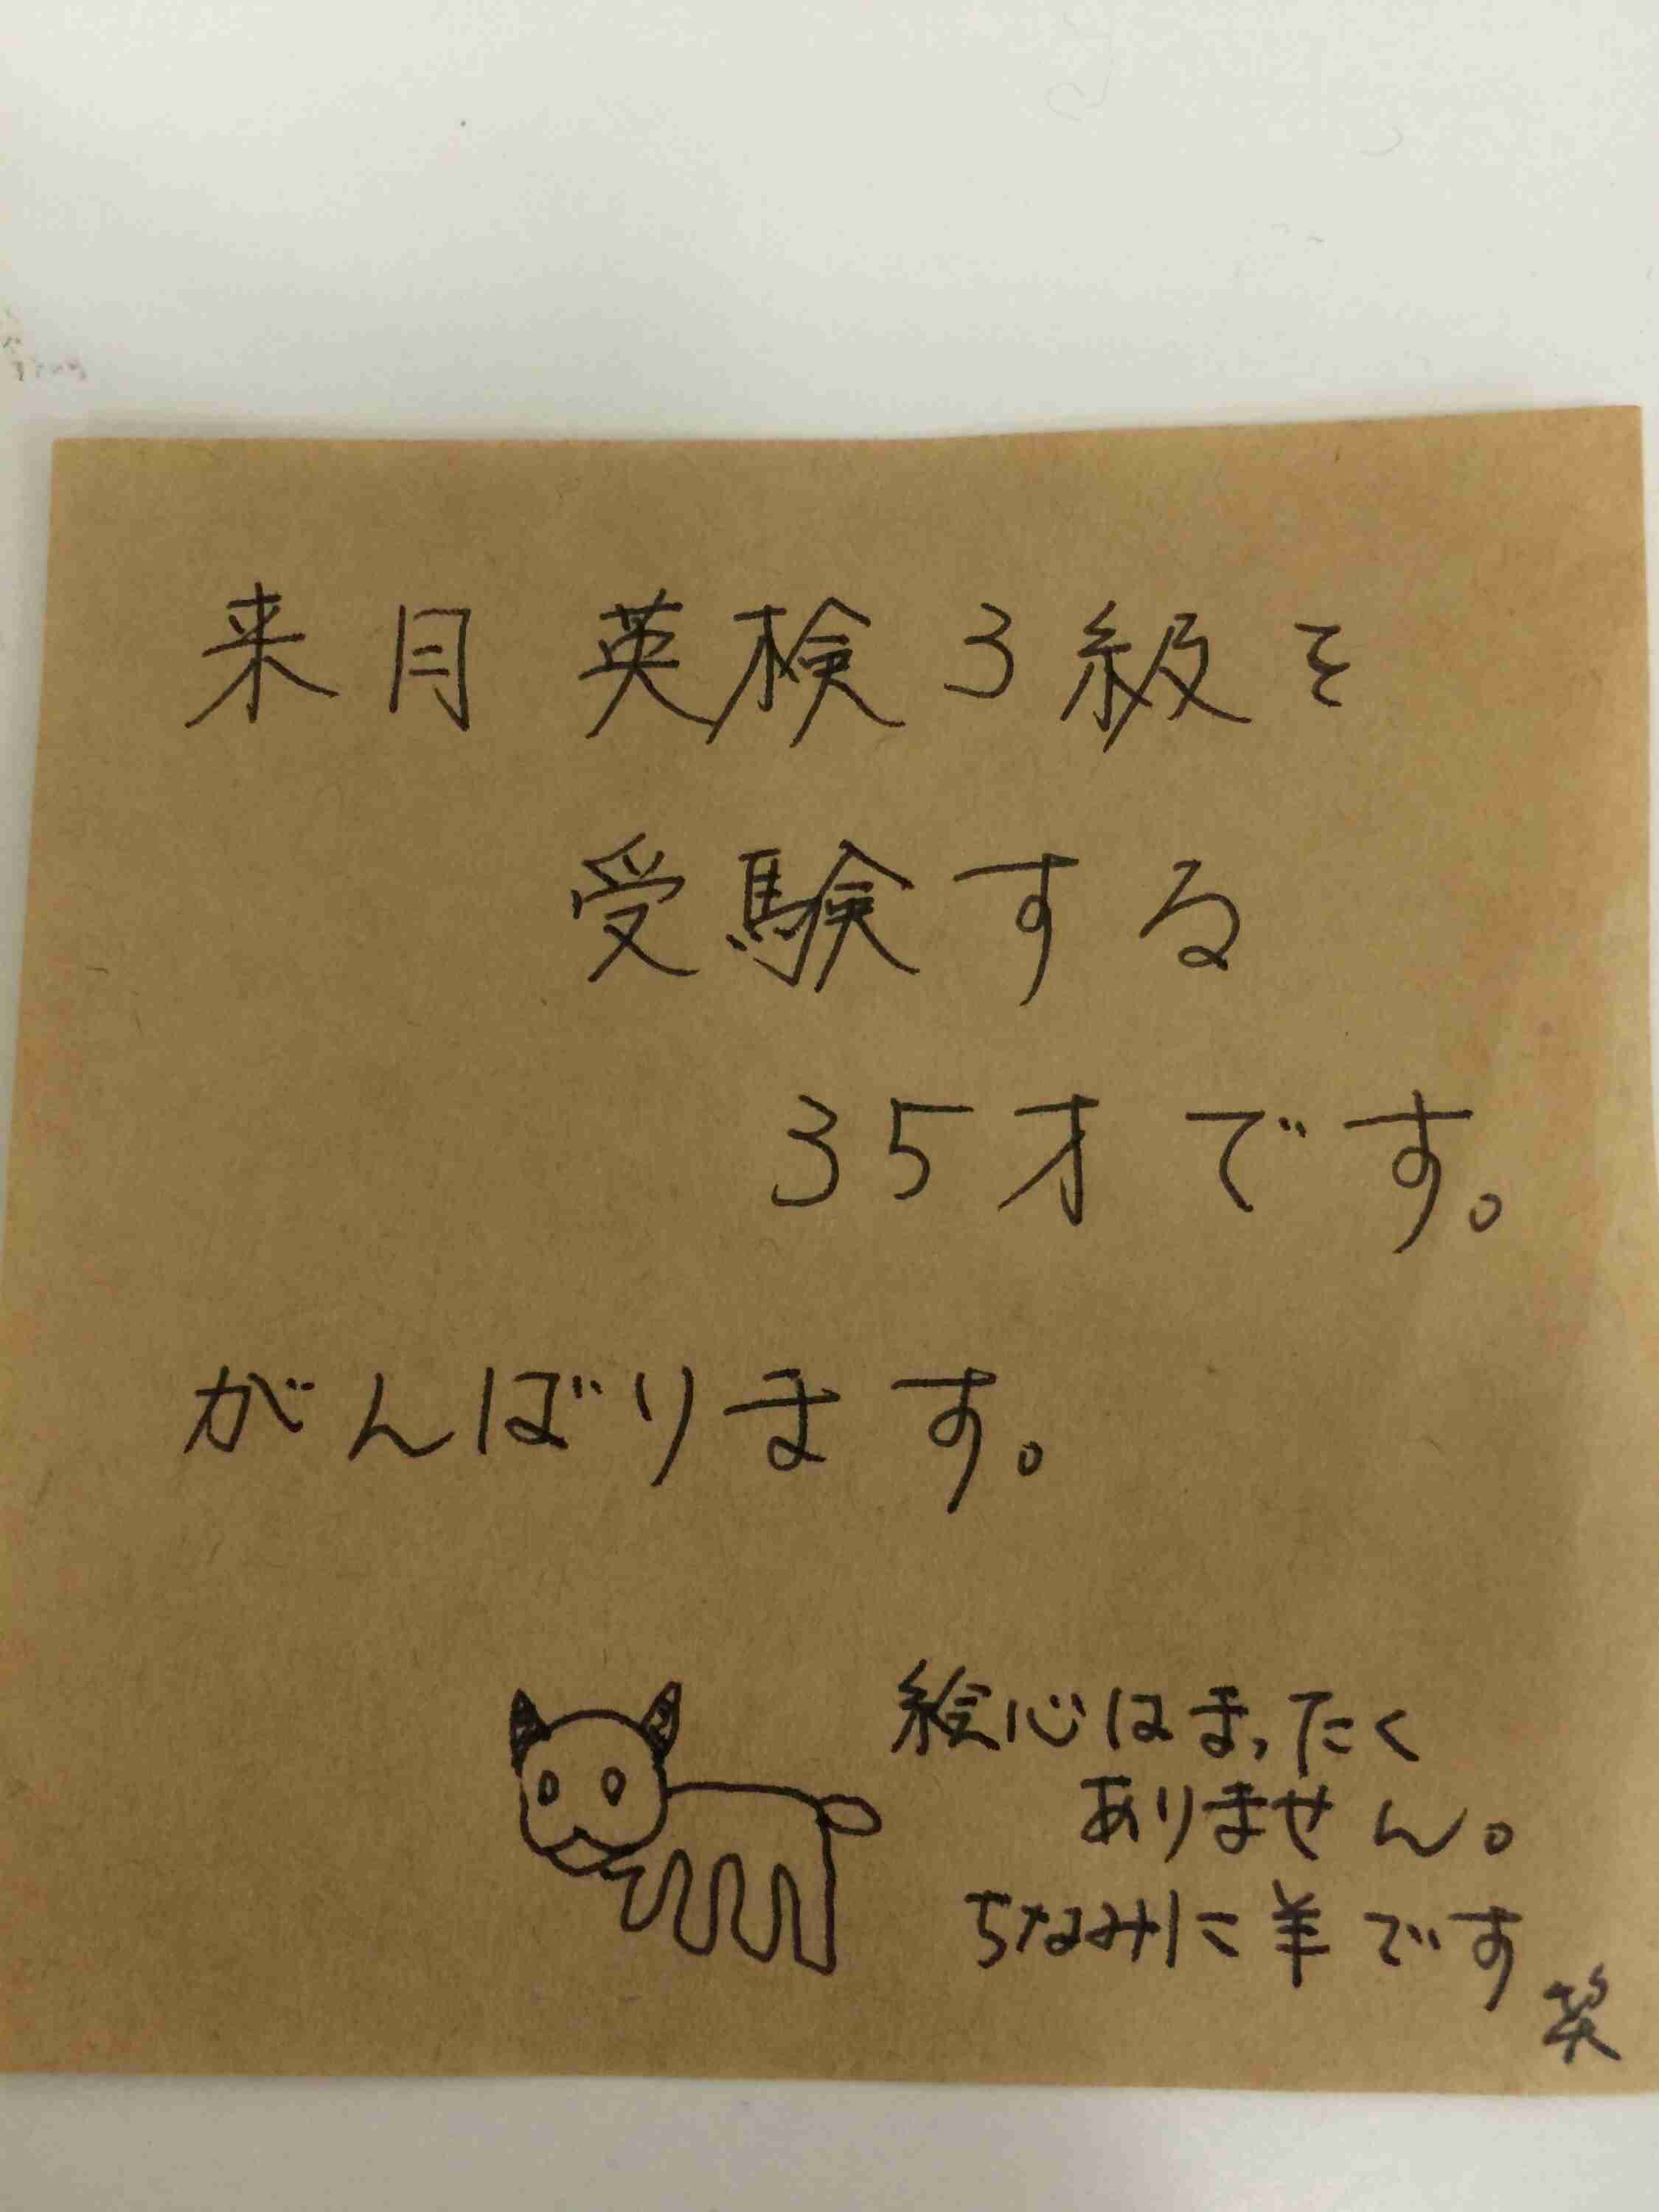 来月英検3級を
受験する
35才です。
がんばります。
絵心はまったく
ありません。
ちなみに羊です
笑